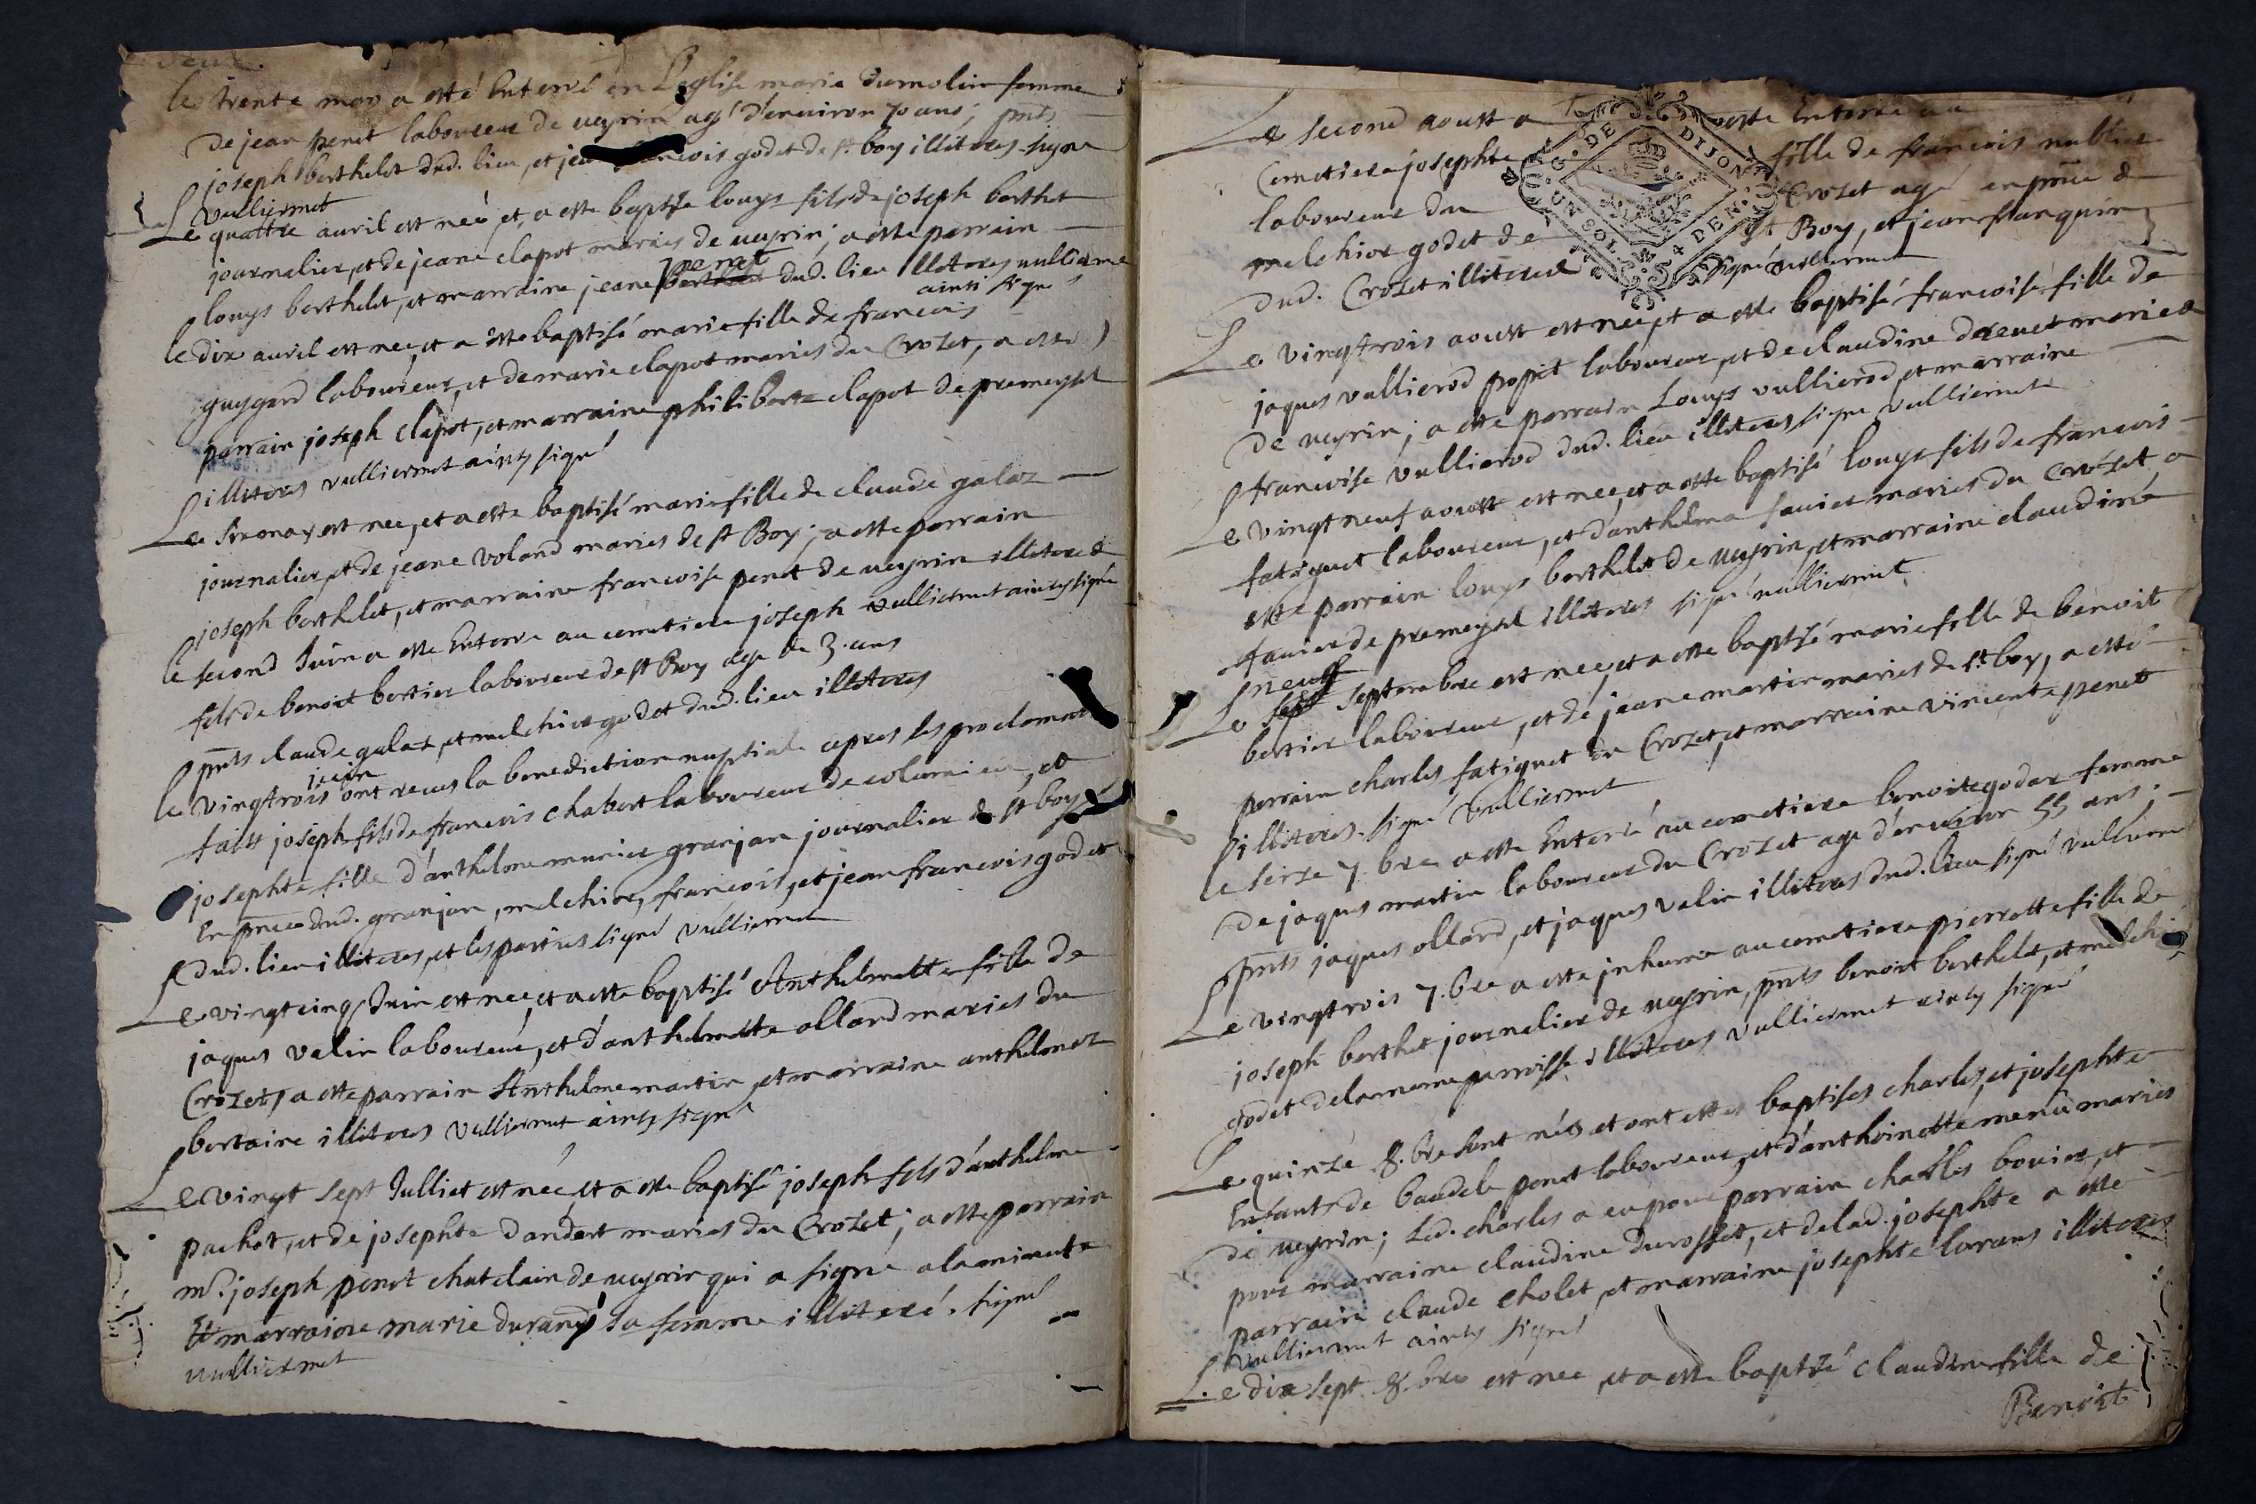 le trente mars a esté Enterré en L'eglise marie dumolin femme
de jean penet laboureur de veyrin agé d'environ 70 ans, pnts
joseph berthelet dud. lieu, et jean francois godet de st boy illiteres signé
vulliermet
Le quattre avril est neé et a esté baptisé louys fils de joseph berthet
journalier, et de jeane clapot mariés de veyrin; a esté parrain
louys berthelet, et marraine jeane penet dud. lieu illiteres vullierme
ainsi signé
le dix avril est neé, et a esté baptisé marie fille de francois
guygard laboureur, et de marie clapot mariés du Crozet, a esté
parrain joseph clapot, et marraine philiberte clapot de premeysel
illiteres vulliermet ainsy signé
Le six may est neé, et a esté baptisé marie fille de claude galaz
journalier, et de jeane voland mariés de st Boy; a esté parrain
joseph berthelet, et marraine francoise penet de veyrin illiteres
vulliermet ainsy signé
le second Juin a esté Enterré au cemetiere joseph
fils de benoit bertier laboureur de st Boy agé de 3 ans
pnts claude galaz, et melchior godet dud. lieu illiteres
juin
le vingtrois ont receus la benediction nuptiale apres les proclamats
faits joseph fils de francois chabert laboureur de colomieu, et
josephte fille d'anthelme murier granjan journalier de st boy
En pnce dud. granjan, melchior, francois, et jean francois godet
dud. lieu illiteres, et les parties signé vulliermet
Le vingt cinq Juin est neé, et a esté baptisé Anthelmette fille de
jaques valin laboureur, et d'anthelmette allard mariés du
Crozet, a esté parrain Anthelme martin, et marraine anthelmaz
bertaire illiteres vulliermet ainsy signé
Le vingt sept Julliet est neé, et a esté baptisé joseph fils d'anthelme
pachot, et de josephte dandert mariés du Crozet; a esté parrain
mr. joseph penet chatelain de veyrin qui a signé a la minute
Et marraine marie durand sa femme illiteré. signé
vulliermet
Le second aoust a esté Enterré au
Cemetiere josephte fille de francois nublier
laboureur du Crozet agé en pnce de
melchior godet de st Boy, et jean franquin
dud. Crozet illiteres signé vulliermet
G. DE DIJON
UN SOL 4 DEN.
Le vingtrois aoust est neé, et a esté baptisé francoise fille de
jaques vullierod popit laboureur, et de claudine dreuet mariés
de veyrin; a esté parrain Louys vullierod, et marraine
francoise vullierod dud. lieu illiteres signé vulliermet
Le vingt neuf aoust est neé, et a esté baptisé louys fils de francois
fatiguet laboureur, et d'anthelma favier mariés du Crozet a
esté parrain louys berthelet de veyrin, et marraine claudine
favier de premeysel illiteres signé vulliermet
neuf
Le sept septembre est neé, et a esté baptisé marie fille de benoit
bertier laboureur, et de jeane martin mariés de st boy, a esté
parrain charles fatiguet du Crozet, et marraine vincente penet
illiteres. signé vulliermet
le seize 7.bre a esté Enterré au cemetiere benoite godar femme
de jaques martin laboureur du Crozet agé d'environ 55 ans.
pnts jaques allard, et jaques valin illiteres dud. lieu signé vullierm
Le vingtrois 7.bre a esté inhumé au cemetiere pierrette fille de
joseph berthet journalier de veyrin, pnts benoit berthelet, et melchior
godet de la meme parroisse illiteres vulliermet ainsy signé
Le quinze 8.bre sont nés et ont estés baptisés charles, et josephte
Enfants de baudele penet laboureur, et d'anthoinette menu mariés
de veyrin; led. charles a eu pour parrain charles bovier, et
pour marraine claudine durosset, et de lad. josephte a esté
parrain claude cholet, et marraine josephte lorans illiteres
vulliermet ainsy signé
Le dix sept 8.bre est neé et a esté baptisé claudine fille de
Benoit